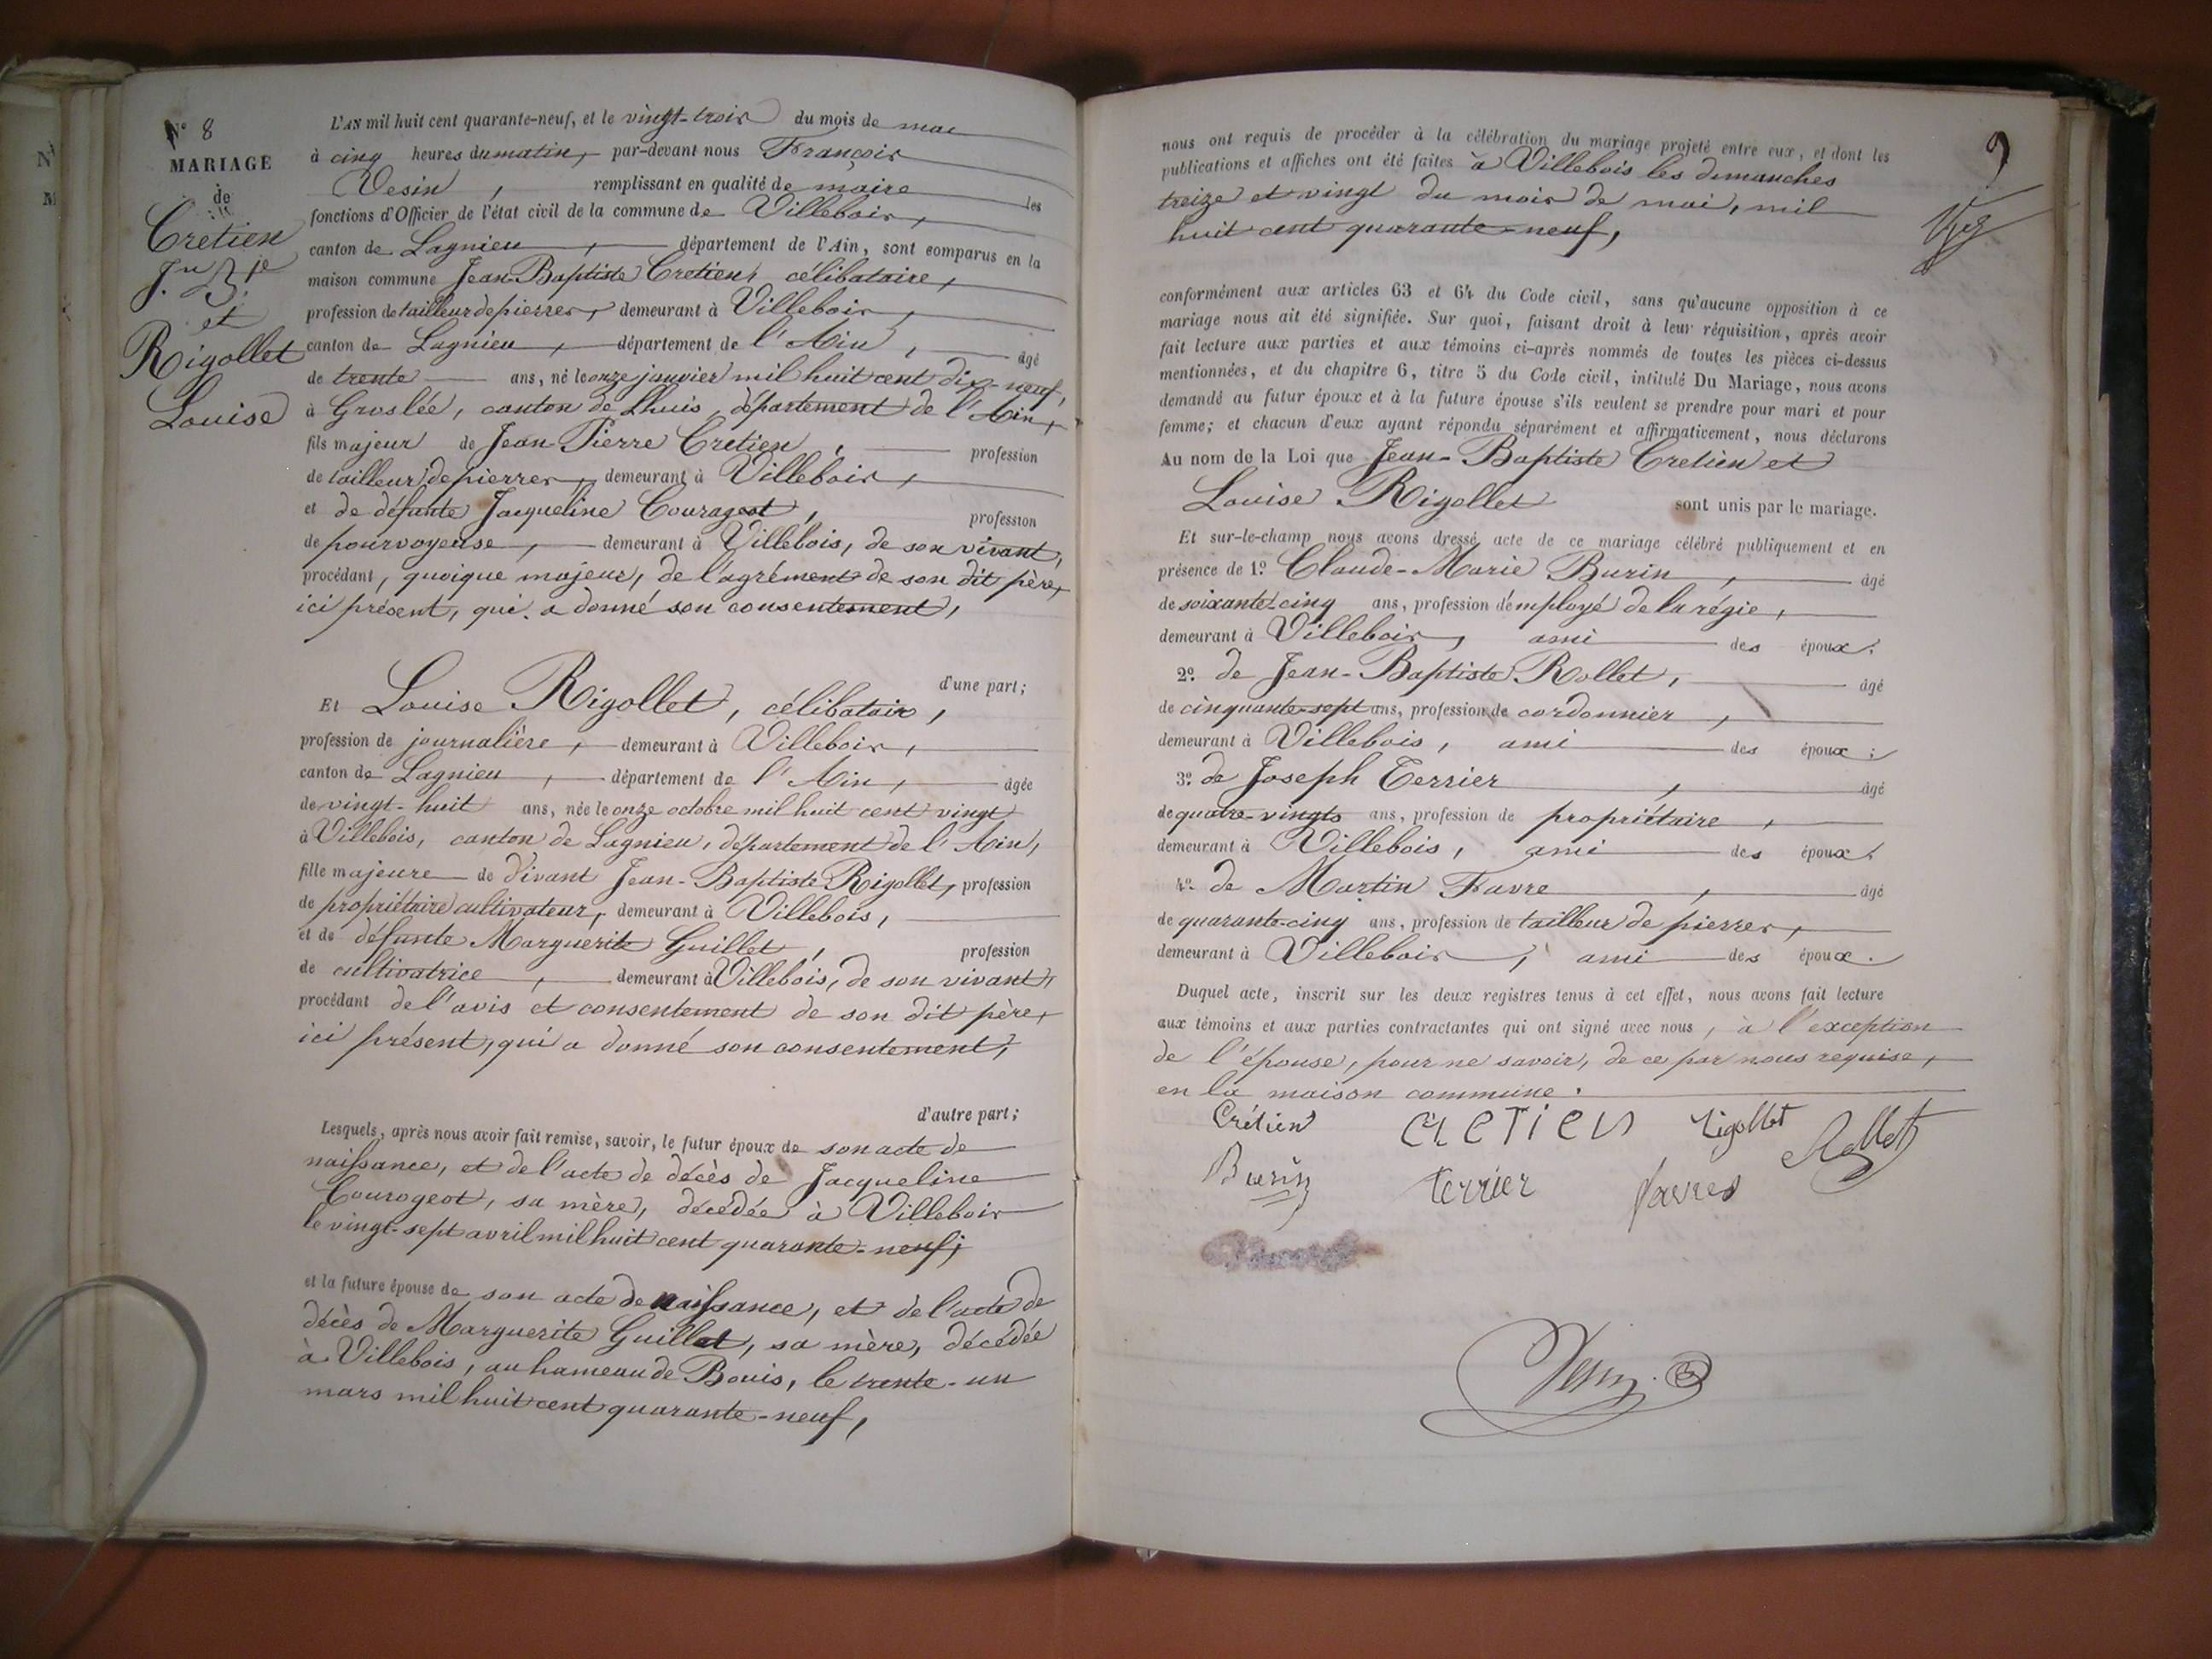 N° 8
MARIAGE
de
Cretien
Jn Bte
et
Rigollet
Louise
L'AN mil huit cent quarante-neuf, et le vingt-trois du mois de mai
à cinq heures du matin, par-devant nous François
Vesin, remplissant en qualité de maire les
fonctions d'Officier de l'état civil de la commune de Villebois,
canton de Lagnieu, département de l'Ain, sont comparus en la
maison commune Jean-Baptiste Cretien, célibataire,
profession de tailleur de pierres, demeurant à Villebois,
canton de Lagnieu, département de l'Ain, âgé
de trente ans, né le onze janvier mil huit cent dix-neuf,
à Groslée, canton de Lhuis, département de l'Ain,
fils majeur de Jean-Pierre Cretien, profession
de tailleur de pierres, demeurant à Villebois,
et de défunte Jacqueline Courageot, profession
de pourvoyeuse, demeurant à Villebois, de son vivant,
procédant, quoique majeur, de l'agrément de son dit père,
ici présent, qui a donné son consentement,
d'une part;
Et Louise Rigollet, célibataire,
profession de journalière, demeurant à Villebois,
canton de Lagnieu, département de l'Ain, âgée
de vingt-huit ans, née le onze octobre mil huit cent vingt
à Villebois, canton de Lagnieu, département de l'Ain,
fille majeure de vivant Jean-Baptiste Rigollet, profession
de propriétaire cultivateur, demeurant à Villebois,
et de défunte Marguerite Guillet, profession
de cultivatrice, demeurant à Villebois, de son vivant,
procédant de l'avis et consentement de son dit père,
ici présent, qui a donné son consentement,
d'autre part;
Lesquels, après nous avoir fait remise, savoir, le futur époux de son acte de
naissance, et de l'acte de décès de Jacqueline
Courogeot, sa mère, décédée à Villebois
le vingt-sept avril mil huit cent quarante-neuf;
et la future épouse de son acte de naissance, et de l'acte de
décès de Marguerite Guillet, sa mère, décédée
à Villebois, au hameau de Bouis, le trente-un
mars mil huit cent quarante-neuf,
9
nous ont requis de procéder à la célébration du mariage projeté entre eux, et dont les
publications et affiches ont été faites à Villebois les dimanches
treize et vingt du mois de mai, mil
huit cent quarante-neuf,
conformément aux articles 63 et 64 du Code civil, sans qu'aucune opposition à ce
mariage nous ait été signifiée. Sur quoi, faisant droit à leur réquisition, après avoir
fait lecture aux parties et aux témoins ci-après nommés de toutes les pièces ci-dessus
mentionnées, et du chapitre 6, titre 5 du Code civil, intitulé Du Mariage, nous avons
demandé au futur époux et à la future épouse s'ils veulent se prendre pour mari et pour
femme; et chacun d'eux ayant répondu séparément et affirmativement, nous déclarons
Au nom de la Loi que Jean-Baptiste Cretien et
Louise Rigollet sont unis par le mariage.
Et sur-le-champ nous avons dressé acte de ce mariage célébré publiquement et en
présence de 1° Claude-Marie Burin, âgé
de soixante-cinq ans, profession d'employé de la régie,
demeurant à Villebois, ami des époux.
2° de Jean-Baptiste Rollet, âgé
de cinquante-sept ans, profession de cordonnier,
demeurant à Villebois, ami des époux;
3° de Joseph Terrier, âgé
de quatre-vingts ans, profession de propriétaire,
demeurant à Villebois, ami des époux.
4° de Martin Favre, âgé
de quarante-cinq ans, profession de tailleur de pierres,
demeurant à Villebois, ami des époux.
Duquel acte, inscrit sur les deux registres tenus à cet effet, nous avons fait lecture
aux témoins et aux parties contractantes qui ont signé avec nous, à l'exception
de l'épouse, pour ne savoir, de ce par nous requise,
en la maison commune.
Crétien CRETIEN Rigollet Rollet
Burin terrier favres
Vesin